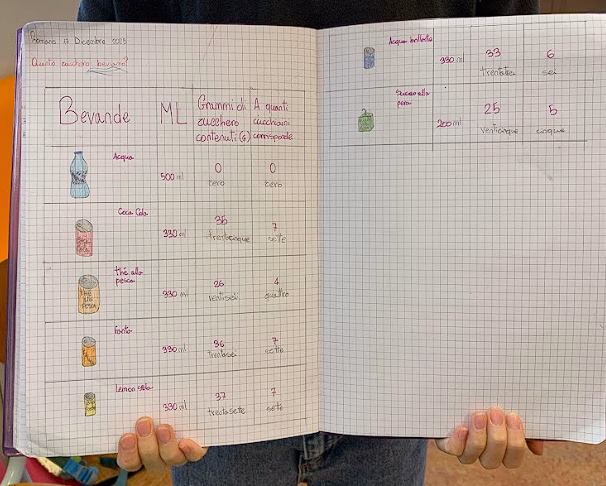 17 Dicembre
Quanto zucchero beviamo?
Bevande
ML
Grammi di zucchero contenuti (G)
A quanti cucchiaini corrisponde
Acqua
500 ml
0
zero
0
zero
Coca Cola
330 ml
35
trentacinque
7
sette
thé alla pesca
330 ml
26
ventisei
4
quattro
Fanta
330 ml
36
trentasei
7
sette
Lemon soda
330 ml
37
trentasette
7
sette
Acqua brillante
330 ml
33
trentatre
6
sei
Succo alla pera
200 ml
25
venticinque
5
cinque